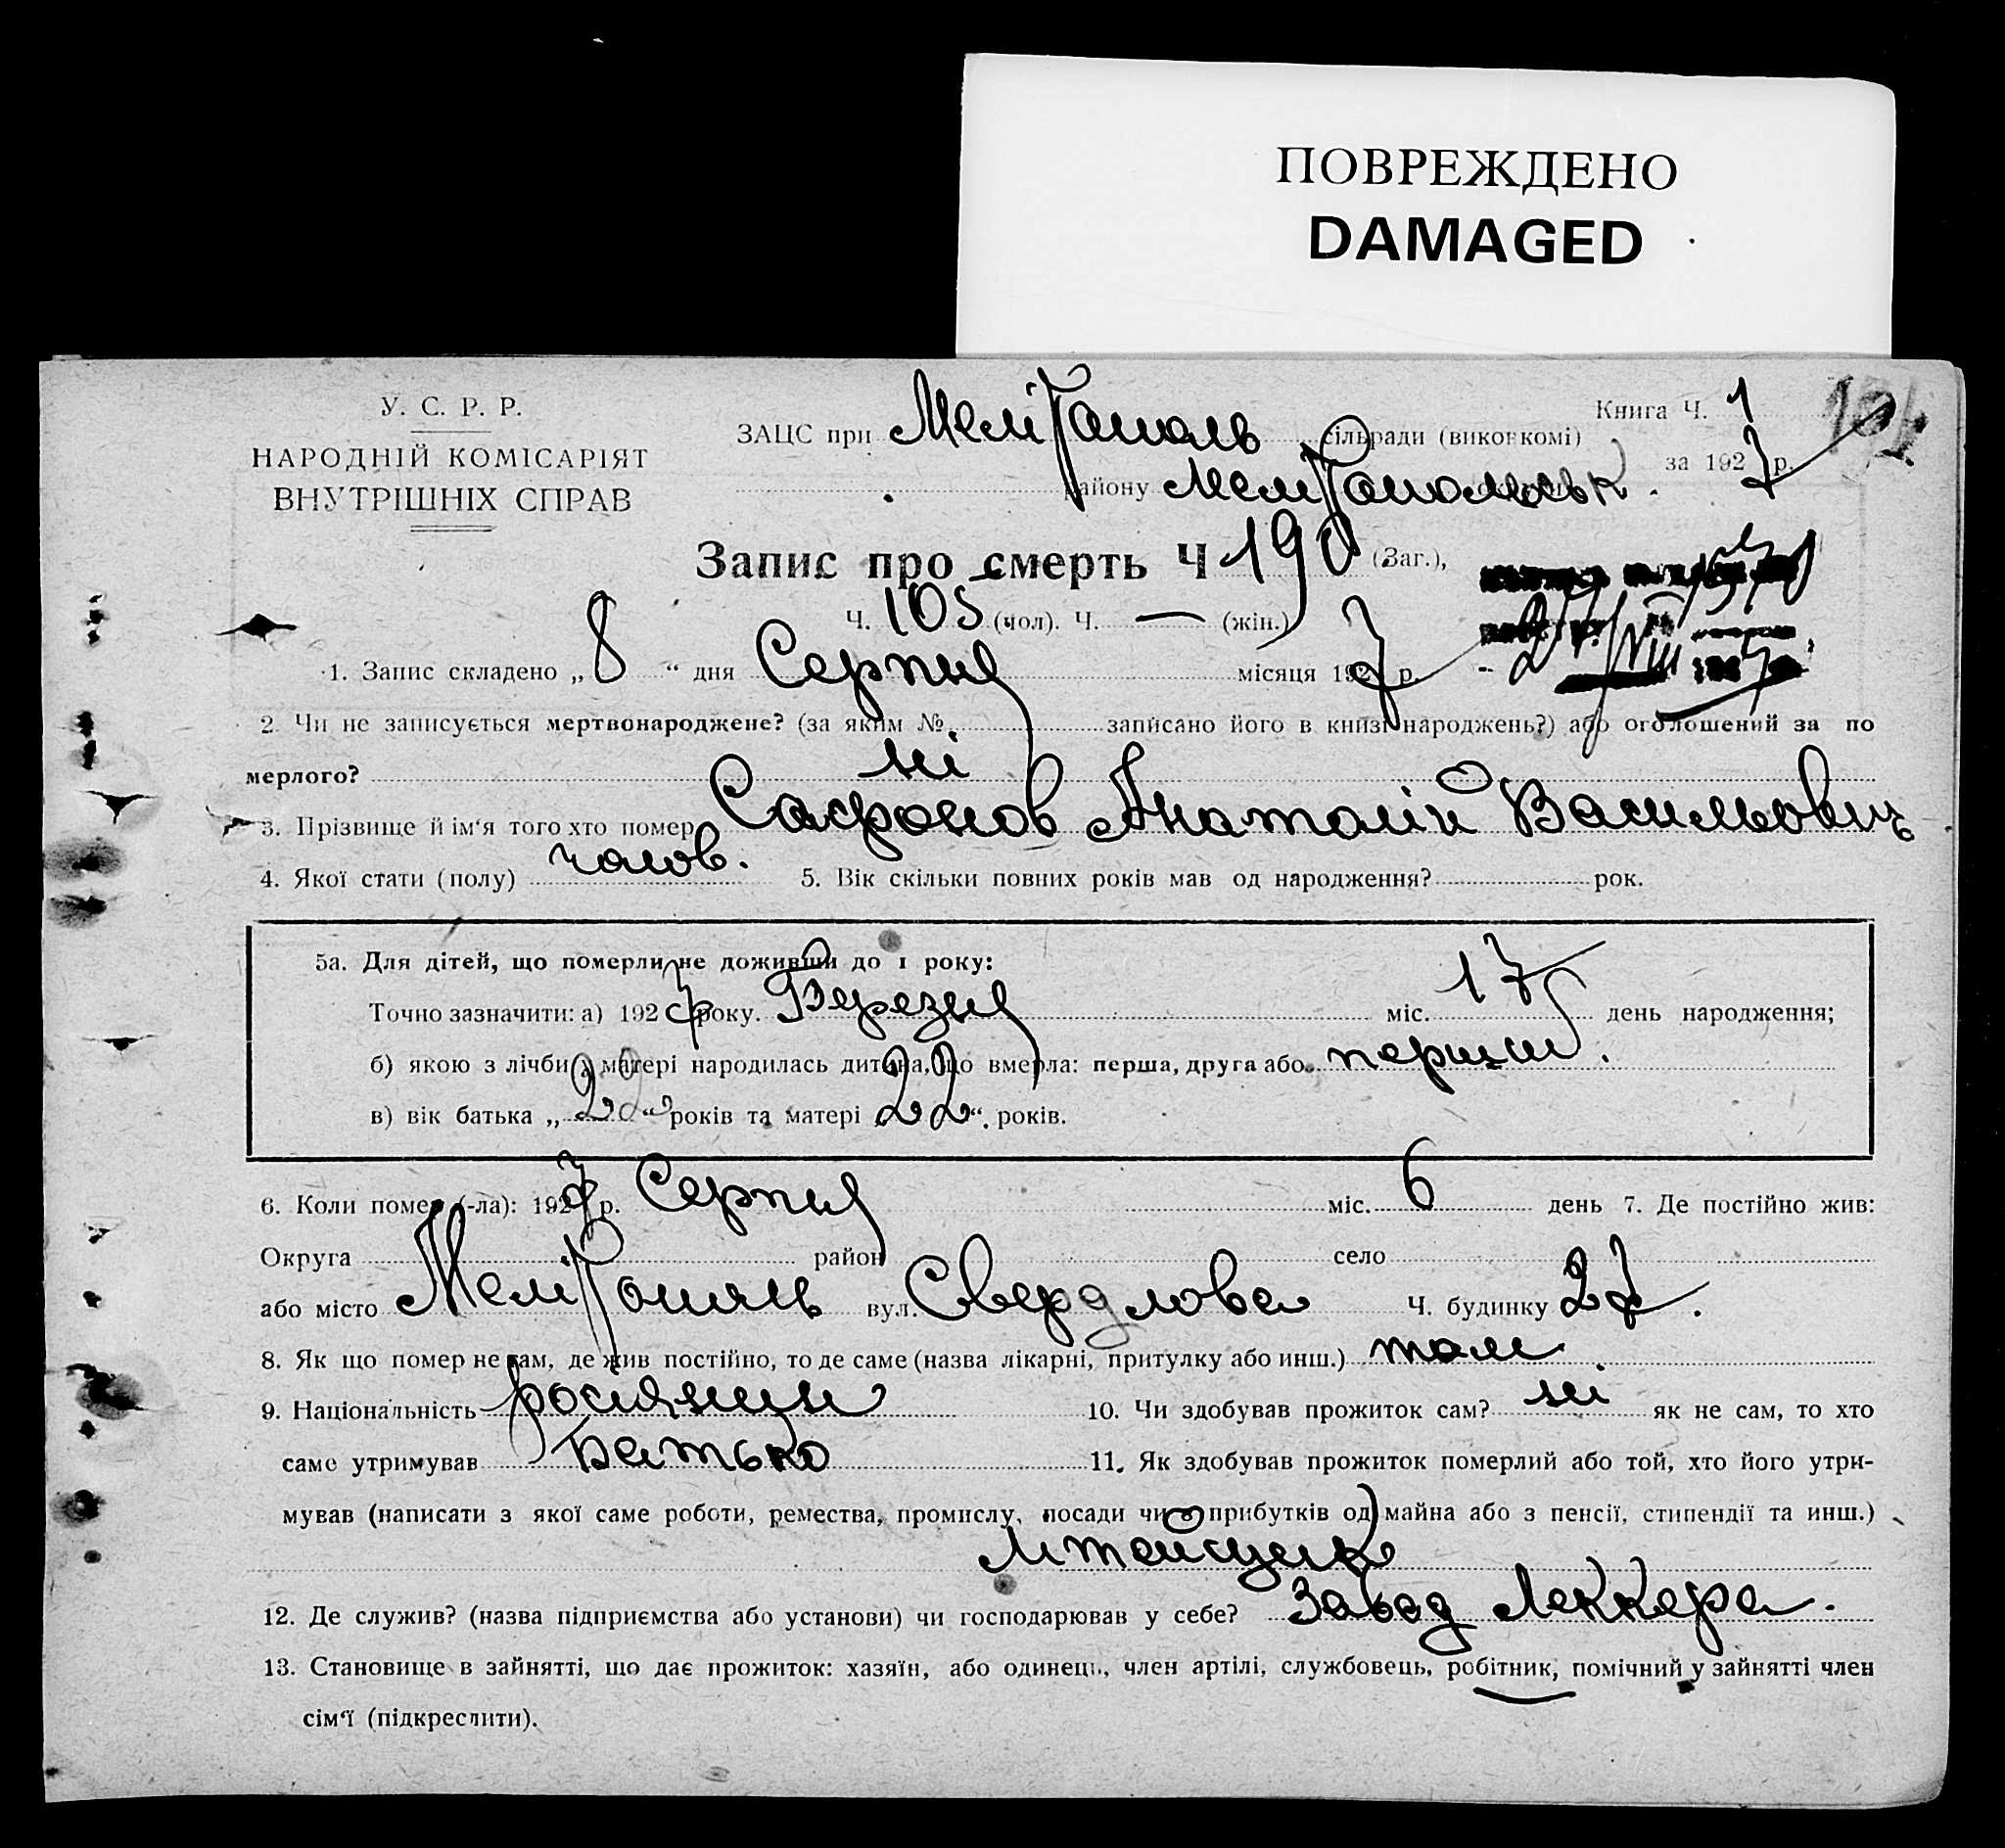 ПОВРЕЖДЕНО
DAMAGED
У. С. Р. Р.
НАРОДНІЙ КОМІСАРІЯТ
ВНУТРІШНІХ СПРАВ
Книга Ч. 1
ЗАЦС при Мелітополь сільради (виконкомі)
за 1927 р.
району Мелітопольськ.
Запис про смерть Ч 190 (Заг.),
Ч. 105 (чол). Ч. — (жін.)
1. Запис складено „8“ дня Серпня місяця 1927 р.
2. Чи не записується мертвонароджене? (за яким № записано його в книзі народжень?) або оголошений за по
мерлого? ні
3. Прізвище й ім'я того хто помер Сафронов Анатолій Васильович
4. Якої стати (полу) чолов. 5. Вік скільки повних років мав од народження? рок.
5а. Для дітей, що померли не доживши до 1 року:
Точно зазначити: а) 1927 року. Березня міс. 17 день народження;
б) якою з лічби у матері народилась дитина, що вмерла: перша, друга або перший.
в) вік батька „22“ років та матері „22“. років.
6. Коли помер (-ла): 1927 р. Серпня міс. 6 день 7. Де постійно жив:
Округа район село
або місто Мелітополь вул. Свердлова Ч. будинку 27.
8. Як що помер не там, де жив постійно, то де саме (назва лікарні, притулку або инш.) там.
9. Національність росіянин 10. Чи здобував прожиток сам? ні як не сам, то хто
саме утримував Батько 11. Як здобував прожиток померлий або той, хто його утри-
мував (написати з якої саме роботи, ремества, промислу, посади чи з прибутків од майна або з пенсії, стипендії та инш.)
12. Де служив? (назва підприємства або установи) чи господарював у себе? Завод Леккера.
13. Становище в зайнятті, що дає прожиток: хазяїн, або одинець, член артілі, службовець, робітник, помічний у зайнятті член
сім'ї (підкреслити).